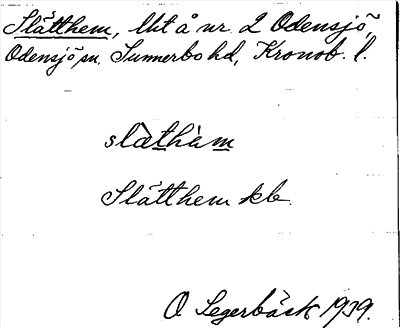 Slätthem, lht å nr. 2 Odensjö,
Odensjö sn, Sunnerbo hd, Kronob. l.
slàthàm
Slätthem kb.
O. Segerbäck 1939.